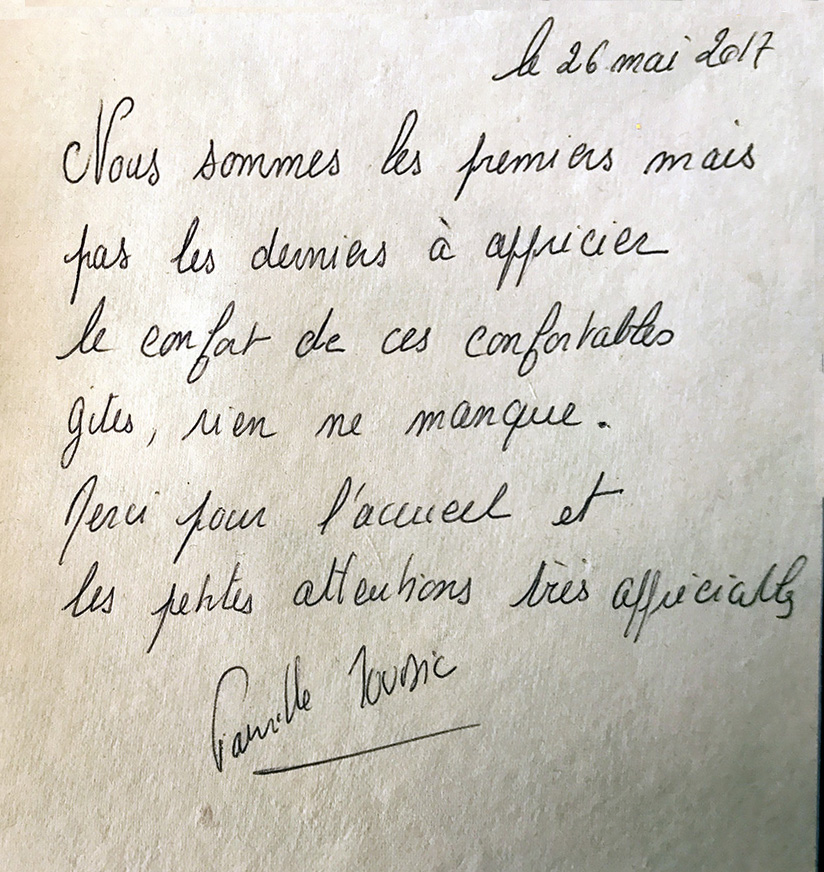 le 26 mai 2017
Nous sommes les premiers mais
pas les derniers à apprécier
le confort de ces confortables
gites, rien ne manque.
Merci pour l'accueil et
les petites attentions très appréciables
Famille